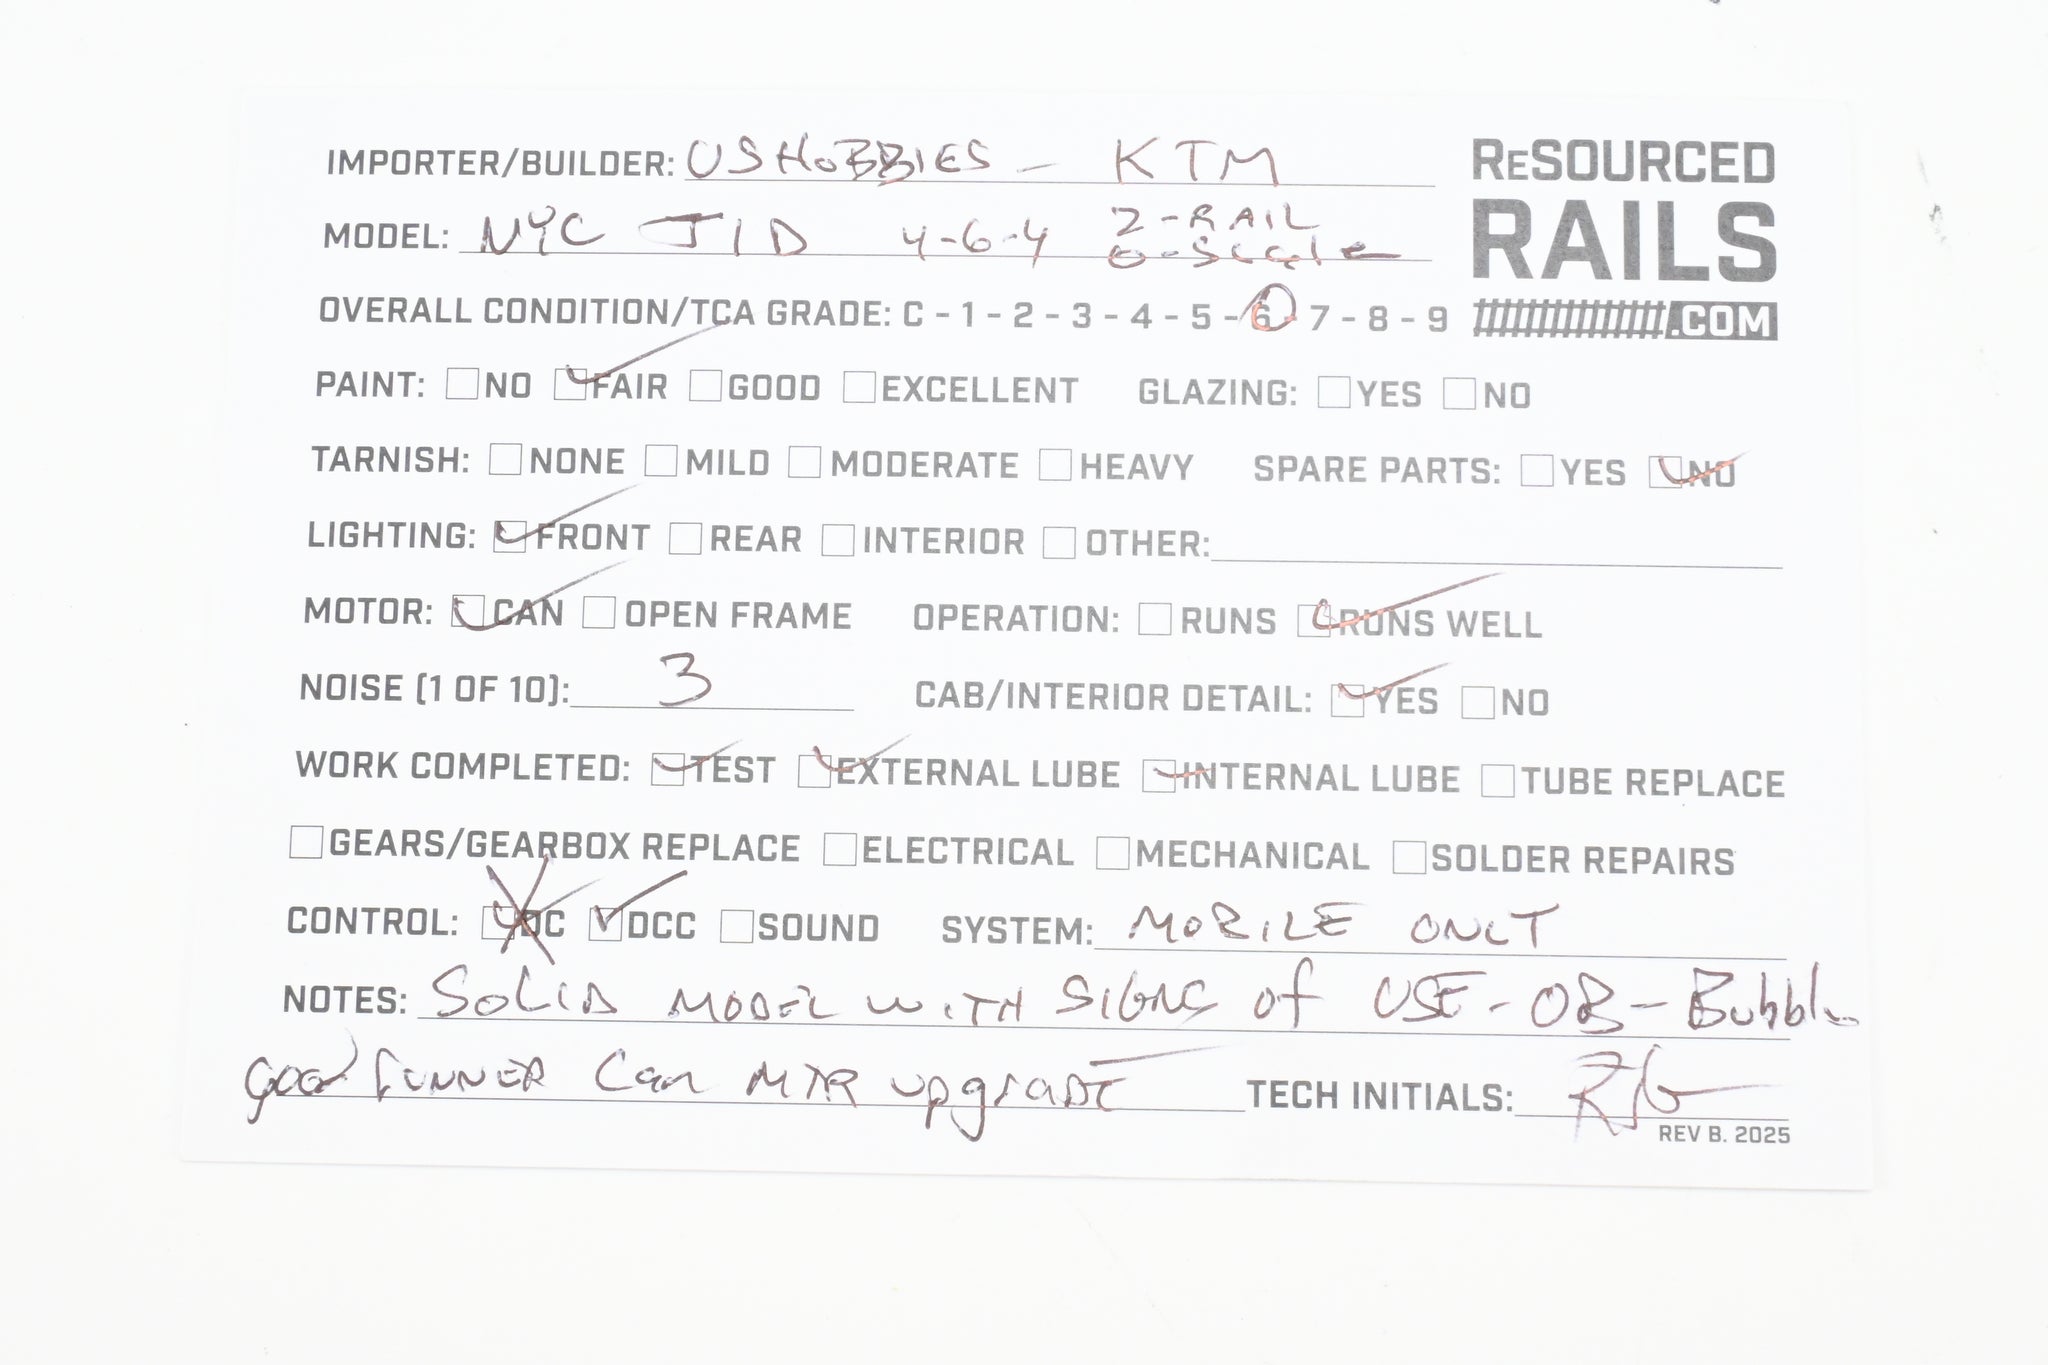 IMPORTER/BUILDER: US HOBBIES - KTM
RESOURCED
RAILS
.COM
MODEL: NYC J1D 4-6-4 2-RAIL O-Scale
OVERALL CONDITION/TCA GRADE: C - 1 - 2 - 3 - 4 - 5 - 6 - 7 - 8 - 9
PAINT: NO FAIR GOOD EXCELLENT GLAZING: YES NO
TARNISH: NONE MILD MODERATE HEAVY SPARE PARTS: YES NO
LIGHTING: FRONT REAR INTERIOR OTHER:
MOTOR: CAN OPEN FRAME OPERATION: RUNS RUNS WELL
NOISE (1 OF 10): 3 CAB/INTERIOR DETAIL: YES NO
WORK COMPLETED: TEST EXTERNAL LUBE INTERNAL LUBE TUBE REPLACE
GEARS/GEARBOX REPLACE ELECTRICAL MECHANICAL SOLDER REPAIRS
CONTROL: DC DCC SOUND SYSTEM: MOBILE ONLY
NOTES: SOLID MODEL WITH SIGNS of USE - OB - Bubble
good RUNNER Can MTR upgrade TECH INITIALS:
REV B. 2025